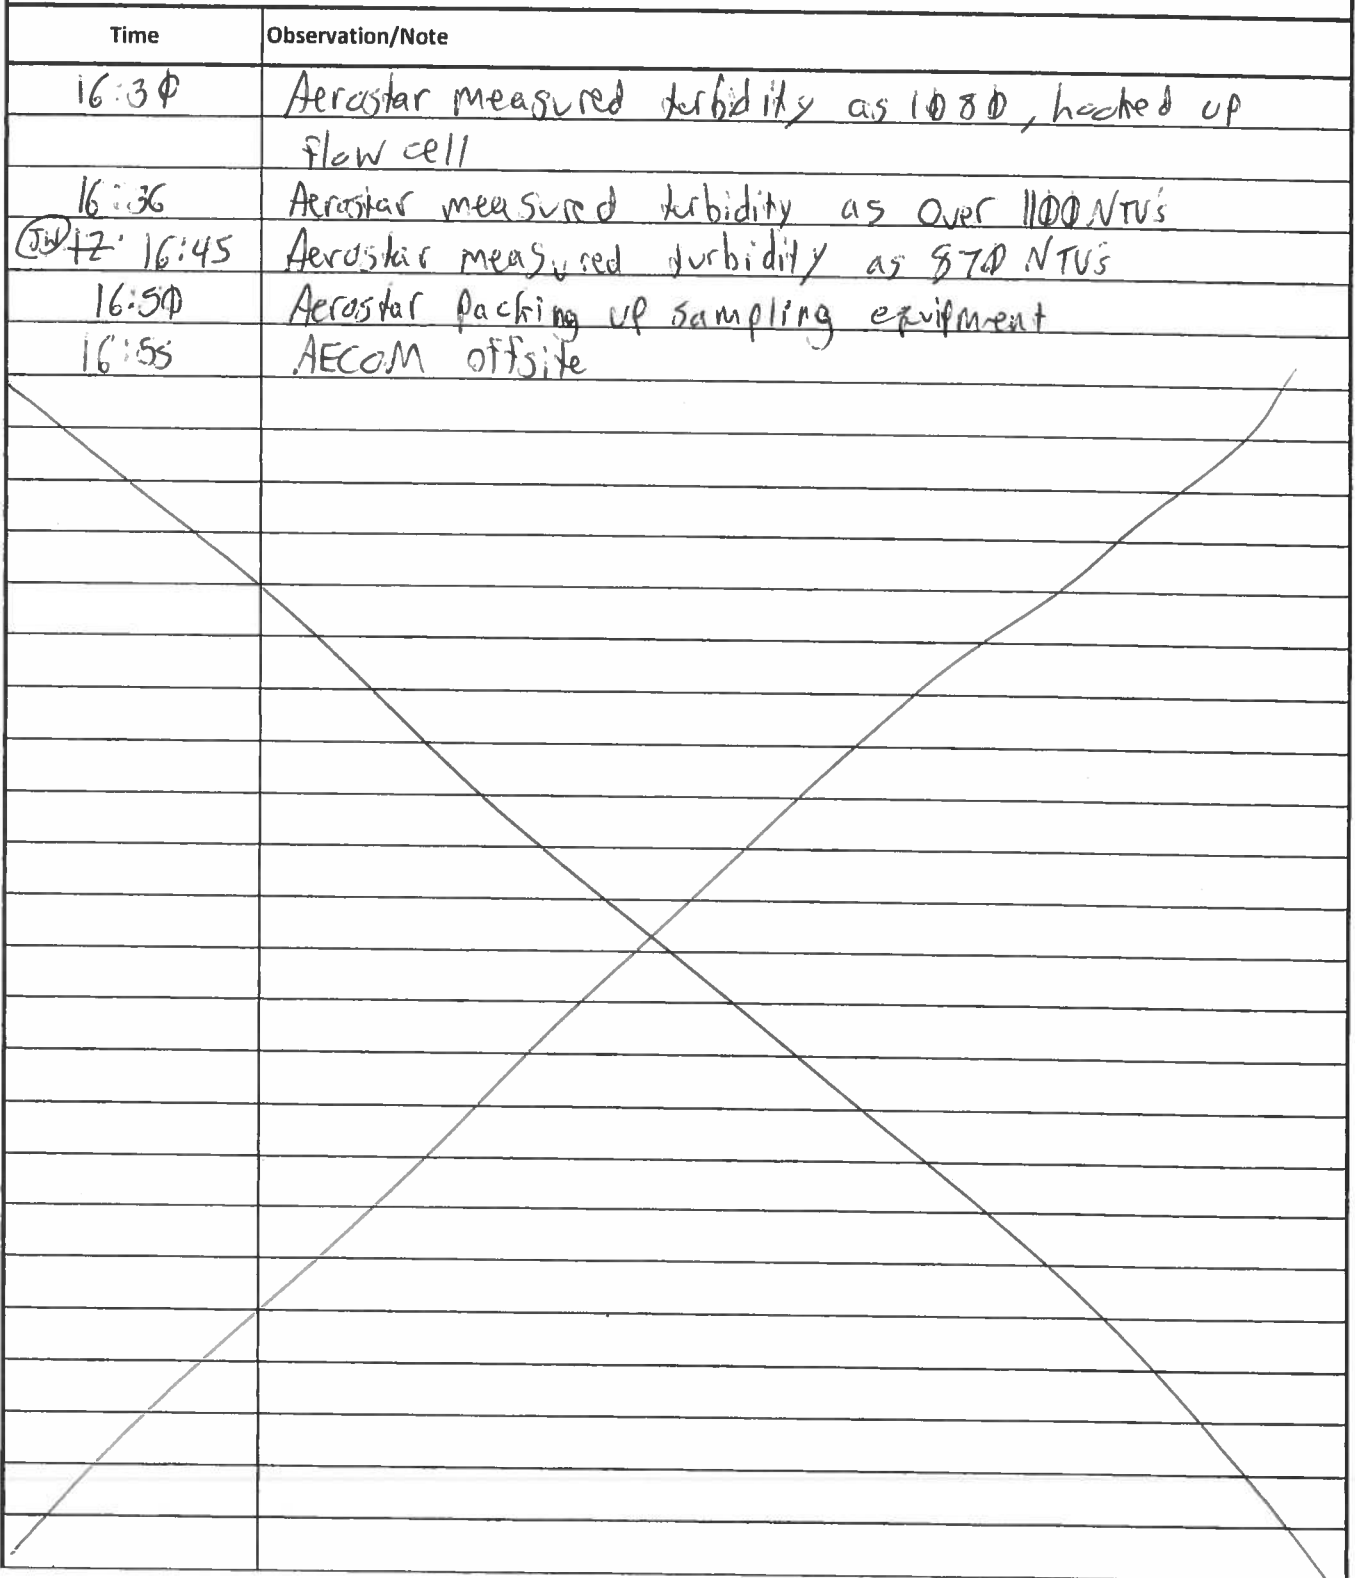 Time Observation/Note
16:30 Aerostar measured turbidity as 1080, hooked up
flow cell
16:36 Aerostar measured turbidity as over 1100 NTU's
JW 12: 16:45 Aerostar measured turbidity as 870 NTU's
16:50 Aerostar packing up sampling equipment
16:55 AECOM offsite